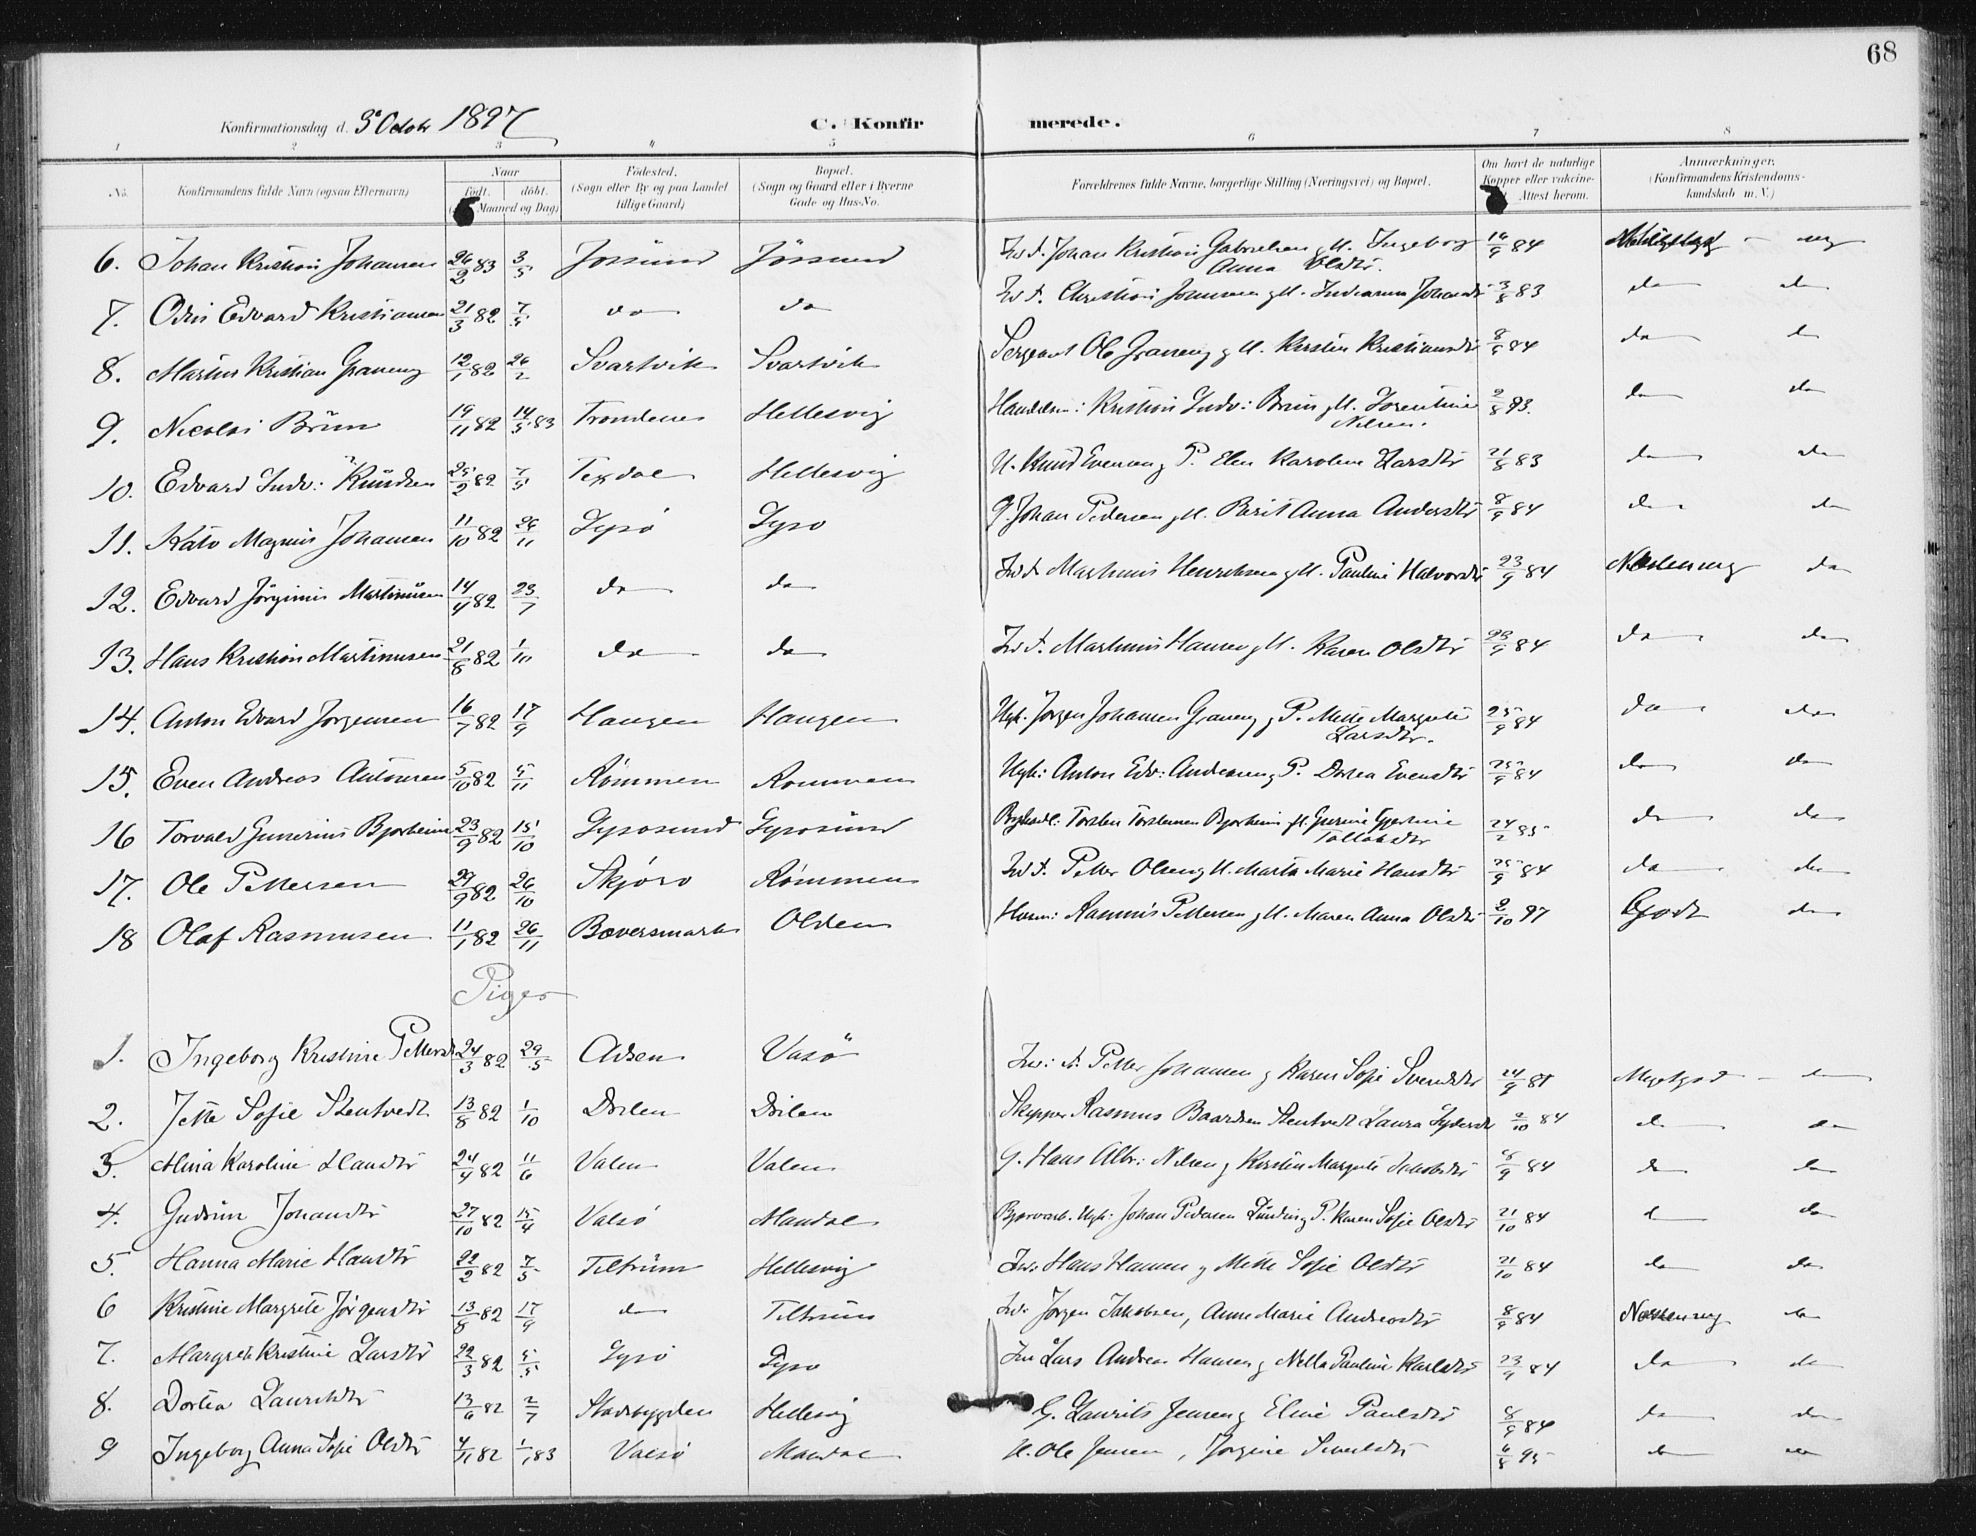 68
Konfirmationsdag d. 3 Octobr 1897
C. Konfirmerede.
1 2 3 4 5 6 7 8
No. Konfirmandens fulde Navn (ogsaa Efternavn) Naar født. døbt. Maaned og Dag) Fødested. (Sogn eller By og paa Landet tillige Gaard) Bopæl. (Sogn og Gaard eller i Byerne Gade og Hus-No. Forældrenes fulde Navne, borgerlige Stilling (Næringsvei) og Bopæl. Om havt de naturlige Kopper eller vakcine- Attest herom. Anmærkninger. (Konfirmandens Kristendoms-kundskab m. V.)
6. Johan Kristian Johansen 26/2 83 3/5 Jøssund Jøssund Ind. Johan Kristian Gabrielsen g M. Ingeborg Anna Olsdtr. 16/9 84
7. Odin Edvard Kristiansen 21/3 82 7/5 do do Christian Johansen g M. Johansdtr 3/8 83 do do
8. Marius Kristian Graneng 12/1 82 26/2 Svartvik Svartvik Sergeant Ole Graneng g M. Kirstin Kristiansdtr 8/9 84 do do
9. Nicolai Brun 19/11 82 14/5 83 Trondenes Hellesvig Kristian Ludv: Brun g M. Nilsen. 2/8 93. do do
10. Edvard Ludv: Knudsen 25/2 82 7/5 Texdal Hellesvig U. Knud Evensen g P. Elen Karoline Larsdtr 21/8 83 do do
11. Kato Magnus Johansen 11/10 82 26/11 Lysø Lyso G. Johan Pedersen g M. Berit Anna Andersdtr 8/9 84 do do
12. Edvard Jørginus Martinusen 14/4 82 23/7 do do Martinus Henriksen g M. Pauline Halvorsdtr 23/9 84 do
13. Hans Kristian Martinusen 21/8 82 1/11 do do Martinus Hansen g M. Karen Olsdtr 23/9 84 do do
14. Anton Edvard Jørgensen 16/7 82 17/9 Haugen Haugen Ugk. Jørgen Johansen Graneng g P. Mette Margrete Larsdtr. 25/9 84 do do
15. Even Andreas Antonsen 5/10 82 5/11 Rømmen Rommen Ugk: Anton Edv: Andersen g P. Dortea Evensdtr 25/9 84 do do
16 Torvald Gunerius Bjørheim 23/9 82 15/10 Lysosund Lysosund Torsten Torstensen Bjørheim g M. 24/2 85 do do
17. Ole Pettersen 29/9 82 26/10 Skjøro Rømmen Petter Olsen g M. Marta Marie Hansdtr 25/9 84 do do
18 Olaf Rasmusen 11/1 82 26/11 Boversmark Olden Husm: Rasmus Pettersen g M. Maren Anna Olsdtr 2/10 97 Godt do
Piger
1. Ingeborg Kristine Pettersdtr 24/3 82 29/5 Adsen Vasø Petter Johansen g Karen Sofie Svendsdtr Megetgodt do
2. Jette Sofie Stentvedt 13/8 82 1/10 Dolen Dølen Skipper Rasmus Baardsen Stentvedt Laura 2/10 84 do do
3. Mina Karoline Hansdtr 24/4 82 11/6 Valen Valen G. Hans Albr: Nilsen g Kirstin Margrete Jakobsdtr 8/9 84 do do
4. Gudrun Johansdtr 27/10 82 15/4 Valsø Mandal Ugk: Johan Pedersen g P. Karen Sofie Olsdtr 21/10 84 do do
5. Hanna Marie Hansdtr 22/2 82 7/5 Tiltrum Hellesvig Ind: Hans Hansen g Mette Sofie Olsdtr 21/10 84 do do
6 Kristine Margrete Jørgensdtr 13/8 82 17/9 do Tiltrum Ind: Jørgen Jakobsen, Anne Marie Andreasdtr 8/9 84 do
7. Margrete Kristine Larsdtr 22/3 82 5/5 Lysø Lyso Lars Andreas Hansen g Nella Pauline Karlsdtr 23/9 84 do do
8. Dortea Lauritsdtr 13/6 82 2/7 Stadsbygden Hellesvig G. Laurits Jensen g Eline Paulsdtr 8/9 84 do do
9 Ingeborg Anna Sofie Olsdtr 4/11 82 1/1 83 Valsø Mandal U. Ole Jensen, Jørgine 6/8 95 do do